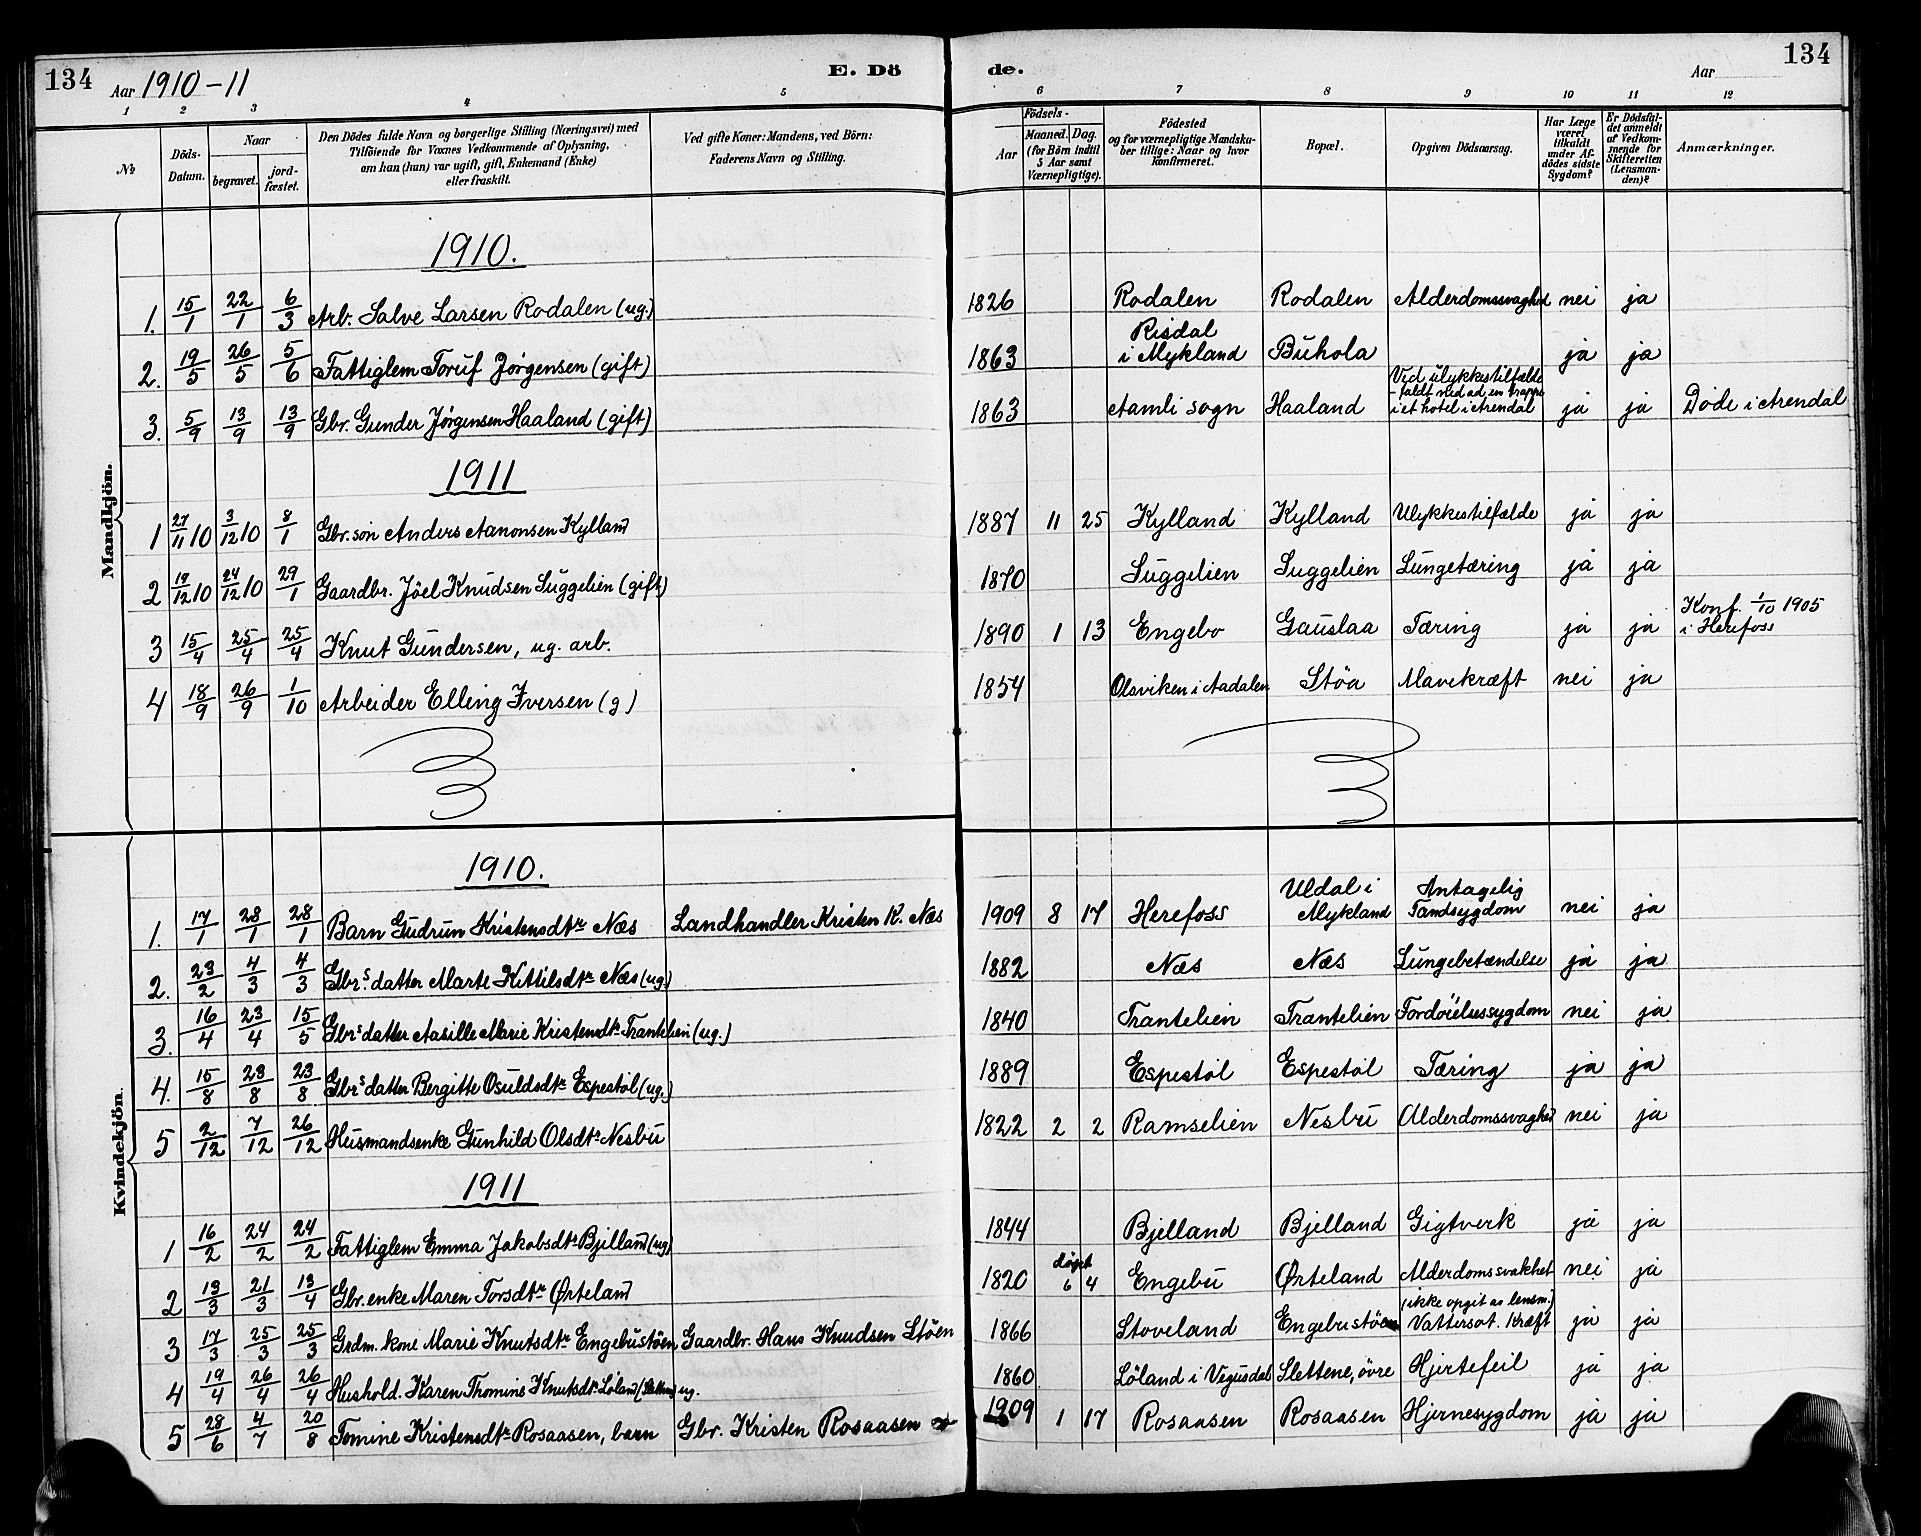 134 Aar 1910-11 E. Dö de. Aar 134
1 2 3 4 5 6 7 8 9 10 11 12
No Döds-Datum. Naar begravet. jordfæstet. Den Dödes fulde Navn og borgerlige Stilling (Næringsvei) med Tilföiende for Voxnes Vedkommende af Oplysning, om han (hun) var ugift, gift, Enkemand (Enke) eller fraskilt. Ved gifte Koner: Mandens, ved Börn: Faderens Navn og Stilling. Födsels- Aar Maaned. Dag. (for Börn indtil 5 Aar samt Værnepligtige). Födested og for værnepligtige Mandskaber tillige: Naar og hvor konfirmeret. Bopæl. Opgiven Dödsaarsag. Har Læge været tilkaldt under Afdödes sidste Sygdom? Er Dödsfaldet anmeldt af Vedkommende for Skifteretten (Lensmanden)? Anmærkninger.
Mandkjön.
1910.
1. 15/1 22/1 6/3 Arb. Salve Larsen Rodalen (ug.) 1826 Rodalen Rodalen Alderdomssvaghed nei ja
2. 19/5 26/5 5/6 Fattiglem Toruf Jørgensen (gift) 1863 Risdal i Mykland Buhola ja ja
3. 5/9 13/9 13/9 Gbr. Gunder Jørgensen Haaland (gift) 1863 Aamli sogn Haaland Ved ulykkestilfælde - faldt ned ad en trappe i et hotel i Arendal ja ja Døde i Arendal
1911
1 27/11 10 3/12 10 8/1 Gbr. søn Anders Aanonsen Kylland 1887 11 25 Kylland Kylland Ulykkestilfælde ja ja
2 19/12 10 24/12 10 29/1 Gaardbr. Jöel Knudsen Suggelien (gift) 1870 Suggelien Suggelien Lungetæring ja ja
3 15/4 25/4 25/4 Knut Gundersen, ug. arb. 1890 1 13 Engebo Gauslaa Tæring ja ja Konf. 1/10 1905 i Herefoss
4 18/9 26/9 1/10 Arbeider Elling Iversen (g) 1854 Olsviken i Aadalen Støa Mavekræft nei ja
Kvindekjön.
1910.
1. 17/1 28/1 28/1 Barn Gudrun Kristensdtr Næs Landhandler Kristen K. Næs 1909 8 17 Herefoss Uldal i Mykland Antagelig Tandsygdom nei ja
2. 23/2 4/3 4/3 Gbrs. datter Marte Kittilsdtr Næs (ug.) 1882 Næs Næs Lungebetændelse ja ja
3. 16/4 23/4 15/5 Gbrs datter Aasille Marie Kristensdtr Trantelien (ug.) 1840 Trantelien Trantelien Fordøielsessygdom nei ja
4. 15/8 23/8 23/8 Gbrs datter Bergitte Osuldsdtr Espestøl (ug.) 1889 Espestøl Espestøl Tæring ja ja
5 2/12 7/12 26/12 Husmandsenke Gunhild Olsdtr Nesbu 1822 2 2 Ramselien Nesbu Alderdomssvaghed nei ja
1911
1 16/2 24/2 24/2 Fattiglem Emma Jakobsdtr Bjelland (ug) 1844 Bjelland Bjelland Gigtverk ja ja
2 13/3 21/3 13/4 Gbr. enke Maren Torsdtr Ørteland 1820 døpt 6 4 Engebu Ørteland Alderdomssvakhet nei ja
3 17/3 25/3 25/3 Grdm. kone Marie Knutsdtr Engebustøen Gaardbr. Hans Knudsen Støen 1866 Stoveland Engebustøen (ikke opgit as lensm.) Vattersot. Kræft ja ja
4 19/4 26/4 26/4 Hushold. Karen Thomine Knutsdtr Løland (Slettene) ug. 1860 Løland i Vegusdal Slettene, övre Hjertefeil ja ja
5 28/6 4/7 20/8 Tomine Kristensdtr Rosaasen, barn Gbr. Kristen Rosaasen 1909 1 17 Rosaasen Rosaasen Hjernesygdom ja ja